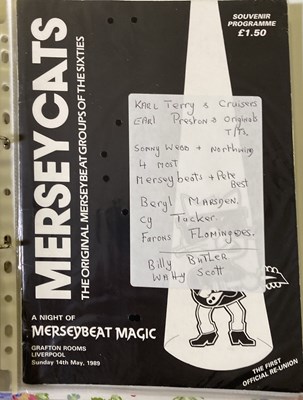 MERSEYCATS
THE ORIGINAL MERSEYBEAT GROUPS OF THE SIXTIES
SOUVENIR
PROGRAMME
£1.50
KARL Terry & Cruisers
EARL Preston & Originals
T/Ts.
Sonny Webb + Northwind
4 most
Merseybeats + Pete
Best
Beryl MARSDEN.
Cy Tucker.
Farons Flomingoes.
Billy BUTLER
WAlly Scott
A NIGHT OF
MERSEYBEAT MAGIC
GRAFTON ROOMS
LIVERPOOL
Sunday 14th May, 1989
THE FIRST
OFFICIAL RE-UNION